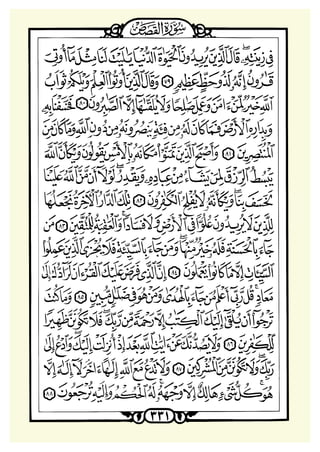 سُورَةُ القَصَصِ
فِي زِينَتِهِۦ قَالَ الَّذِينَ يُرِيدُونَ الْحَيَوٰةَ الدُّنْيَا يَٰلَيْتَ لَنَا مِثْلَ مَا أُوتِيَ
قَٰرُونُ إِنَّهُۥ لَذُو حَظٍّ عَظِيمٍ ٧٩ وَقَالَ الَّذِينَ أُوتُوا الْعِلْمَ وَيْلَكُمْ ثَوَابُ
اللَّهِ خَيْرٌ لِّمَنْ ءَامَنَ وَعَمِلَ صَٰلِحًا وَلَا يُلَقَّىٰهَا إِلَّا الصَّٰبِرُونَ ٨٠ فَخَسَفْنَا بِهِۦ
وَبِدَارِهِ الْأَرْضَ فَمَا كَانَ لَهُۥ مِن فِئَةٍ يَنصُرُونَهُۥ مِن دُونِ اللَّهِ وَمَا كَانَ مِنَ
الْمُنتَصِرِينَ ٨١ وَأَصْبَحَ الَّذِينَ تَمَنَّوْا مَكَانَهُۥ بِالْأَمْسِ يَقُولُونَ وَيْكَأَنَّ اللَّهَ
يَبْسُطُ الرِّزْقَ لِمَن يَشَاءُ مِنْ عِبَادِهِۦ وَيَقْدِرُ لَوْلَا أَن مَّنَّ اللَّهُ عَلَيْنَا
لَخَسَفَ بِنَا وَيْكَأَنَّهُۥ لَا يُفْلِحُ الْكَٰفِرُونَ ٨٢ تِلْكَ الدَّارُ الْآخِرَةُ نَجْعَلُهَا
لِلَّذِينَ لَا يُرِيدُونَ عُلُوًّا فِي الْأَرْضِ وَلَا فَسَادًا وَالْعَٰقِبَةُ لِلْمُتَّقِينَ ٨٣ مَن
جَاءَ بِالْحَسَنَةِ فَلَهُۥ خَيْرٌ مِّنْهَا وَمَن جَاءَ بِالسَّيِّئَةِ فَلَا يُجْزَى الَّذِينَ عَمِلُوا
السَّيِّئَاتِ إِلَّا مَا كَانُوا يَعْمَلُونَ ٨٤ إِنَّ الَّذِي فَرَضَ عَلَيْكَ الْقُرْءَانَ لَرَادُّكَ إِلَىٰ
مَعَادٍ قُل رَّبِّي أَعْلَمُ مَن جَاءَ بِالْهُدَىٰ وَمَنْ هُوَ فِي ضَلَٰلٍ مُّبِينٍ ٨٥ وَمَا كُنتَ
تَرْجُوا أَن يُلْقَىٰ إِلَيْكَ الْكِتَٰبُ إِلَّا رَحْمَةً مِّن رَّبِّكَ فَلَا تَكُونَنَّ ظَهِيرًا
لِّلْكَٰفِرِينَ ٨٦ وَلَا يَصُدُّنَّكَ عَنْ ءَايَٰتِ اللَّهِ بَعْدَ إِذْ أُنزِلَتْ إِلَيْكَ وَادْعُ إِلَىٰ
رَبِّكَ وَلَا تَكُونَنَّ مِنَ الْمُشْرِكِينَ ٨٧ وَلَا تَدْعُ مَعَ اللَّهِ إِلَٰهًا ءَاخَرَ لَا إِلَٰهَ إِلَّا
هُوَ كُلُّ شَيْءٍ هَالِكٌ إِلَّا وَجْهَهُۥ لَهُ الْحُكْمُ وَإِلَيْهِ تُرْجَعُونَ ٨٨
٣٣١